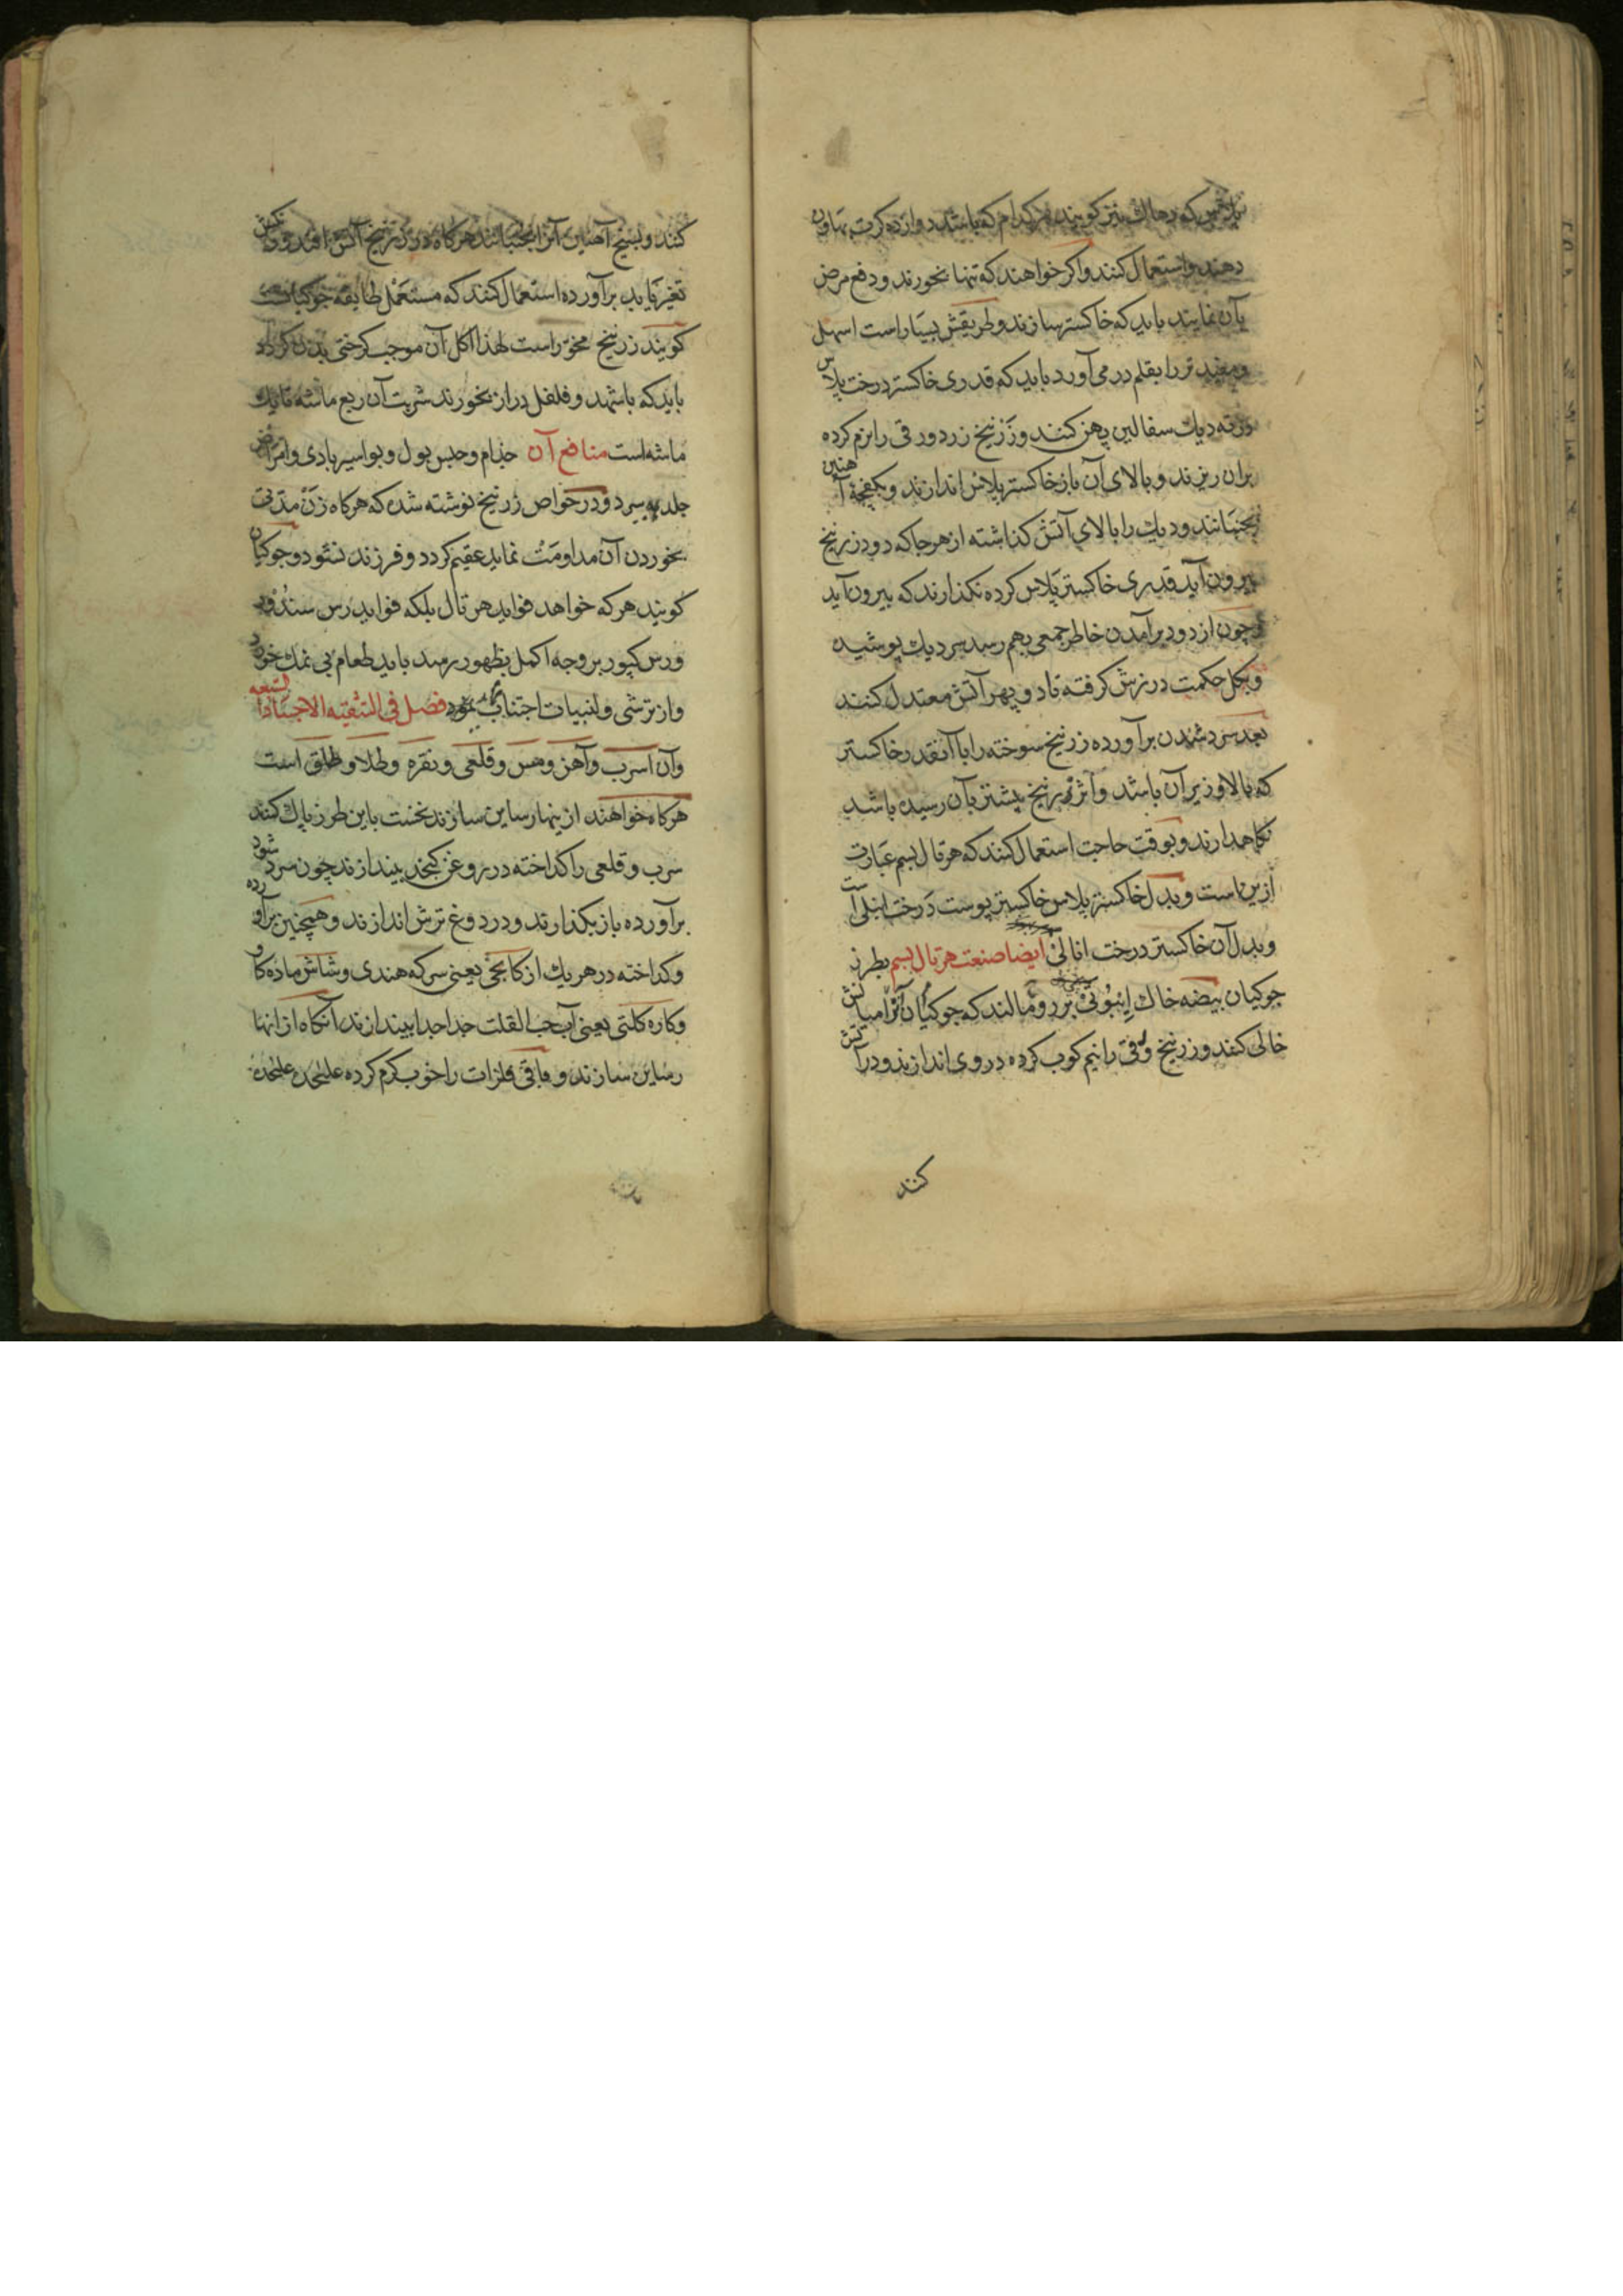 پلاس که دهاک نیز گویند هر کدام که باشد دوازده کرت بهاون
دهند و استعمال کنند و اکر خواهند که تنها بخورند و دفع مرض
بآن نمایند باید که خاکستر سازند و طریقش بسیار است اسهل
و مفید تر را بقلم در می آورد باید که قدری خاکستر درخت پلاس
در ته دیک سفالین پهن کنند و زرنیخ زرد ورقی را نرم کرده
بران ریزند و بالای آن باز خاکستر پلاس اندازند و بکفچهٔ آهنین
بجنبانند و دیک را بالای آتش کذاشته از هر جا که دود زرنیخ
بیرون آید قدری خاکستر پلاس کرده نکذارند که بیرون آید
و چون از دود برآمدن خاطر جمعی بهم رسد سر دیک پوشیده
و بکل حکمت درزش کرفته تا دو پهر آتش معتدل کنند
بعد سرد شدن برآورده زرنیخ سوخته را با آنقدر خاکستر
که بالا و زیر آن باشد و اثر زرنیخ بیشتر بآن رسیده باشد
نکاهدارند و بوقت حاجت استعمال کنند که هرتال بسم عبارت
ازین است و بدل خاکستر پلاس خاکستر پوست درخت انبلی است
و بدل آن خاکستر درخت ایضا صنعت هرتال بسم بطرز
جوکیان بیضه خاک برو مالند که جوکیان آنرا میانش
خالی کنند و زرنیخ ورقی را نیم کوب کرده در وی اندازند و در آتش
کنند
کنند و بسیخ آهنین آنرا بجنبانند هرکاه در زرنیخ آتش افتد و
تغیر یابد برآورده استعمال کنند که مستعمل طایفه جوکیانست
کویند زرنیخ مخدر است لهذا اکل آن موجب کرختی بدن کردد
باید که باشهد و فلفل دراز بخورند شربت آن ربع ماشه تا یک
ماشه است منافع آن جذام و حبس بول و بواسیر بادی و امراض
جلدیه ببرد و در خواص زرنیخ نوشته شده که هرکاه زن مدتی
بخوردن آن مداومت نماید عقیم کردد و فرزند نشود و جوکیان
کویند هر که خواهد فواید هرتال بلکه فواید رس سندور
و رس کپور بر وجه اکمل بظهور رسد باید طعام بی نمک خورد
و از ترشی و لنبیات اجتناب نمود فصل فی التنقیه الاجساد السبعه
و آن اسرب و آهن و مس و قلعی و نقره و طلا و طلق است
هرکاه خواهند ازینها رساین سازند نخست باین طرز پاک کنند
سرب و قلعی را کداخته در روغن کنجد بیندازند چون سرد شود
برآورده باز بکدازند و در دوغ ترش اندازند و همچنین برآورده
و کداخته در هر یک از کانجی یعنی سرکه هندی و شاش ماده کاو
و کاره کلتی یعنی آب حب القلت جدا جدا بیندازند آنکاه از انها
رساین سازند و باقی فلزات را خوب کرم کرده علیحده علیحده